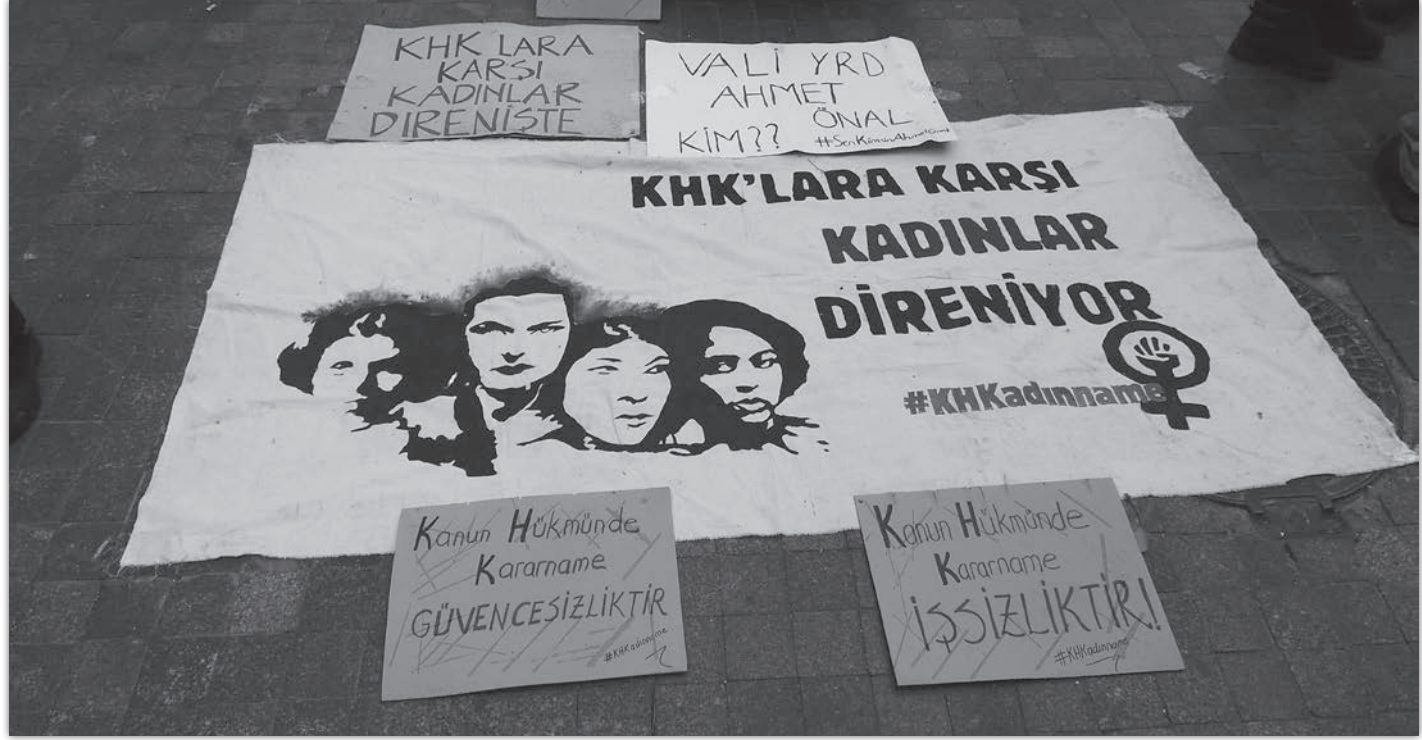 KHK LARA
KARŞI
KADINLAR
DİRENİŞTE
VALİ YRD
AHMET
ÖNAL
KİM??
KHK'LARA KARŞI
KADINLAR
DİRENİYOR
#KHKadınname
Kanun Hükmünde
Kararname
GÜVENCESİZLİKTİR
#KHKadınname
Kanun Hükmünde
Kararname
İŞSİZLİKTİR!
#KHKadınname